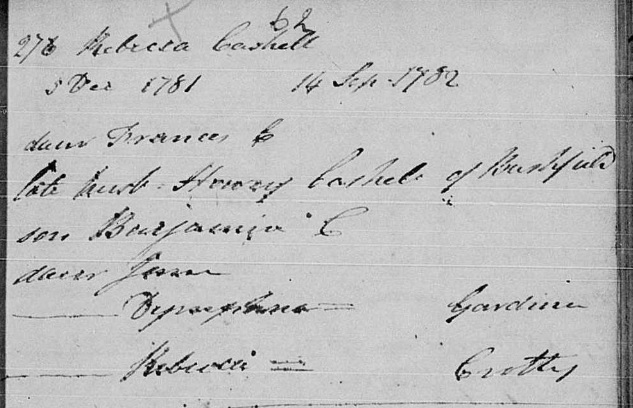 62
278 Rebecca Cashell
5 Dec 1781 14 Sep. 1782
daur Frances C
late husb. Henry Cashell of Bushfield
son Benjamin C
daur Jane
Dymphna = Gardiner
Rebecca = Crotty